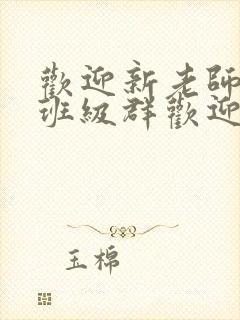 歡迎新老師
班級群歡迎
玉棉